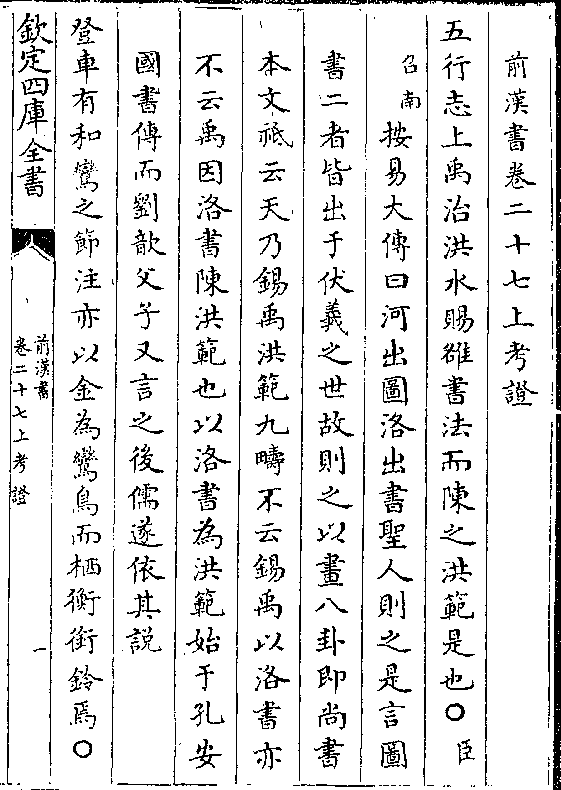 前漢書卷二十七上考證
五行志上禹治洪水賜雒書法而陳之洪範是也○臣
召南按易大傳曰河出圖洛出書聖人則之是言圖
書二者皆出于伏羲之世故則之以畫八卦即尚書
本文祇云天乃錫禹洪範九疇不云錫禹以洛書亦
不云禹因洛書陳洪範也以洛書為洪範始于孔安
國書傳而劉歆父子又言之後儒遂依其説
登車有和鸞之節注亦以金為鸞鳥而栖衡銜鈴焉○
欽定四庫全書
前漢書
卷二十七上考證
一